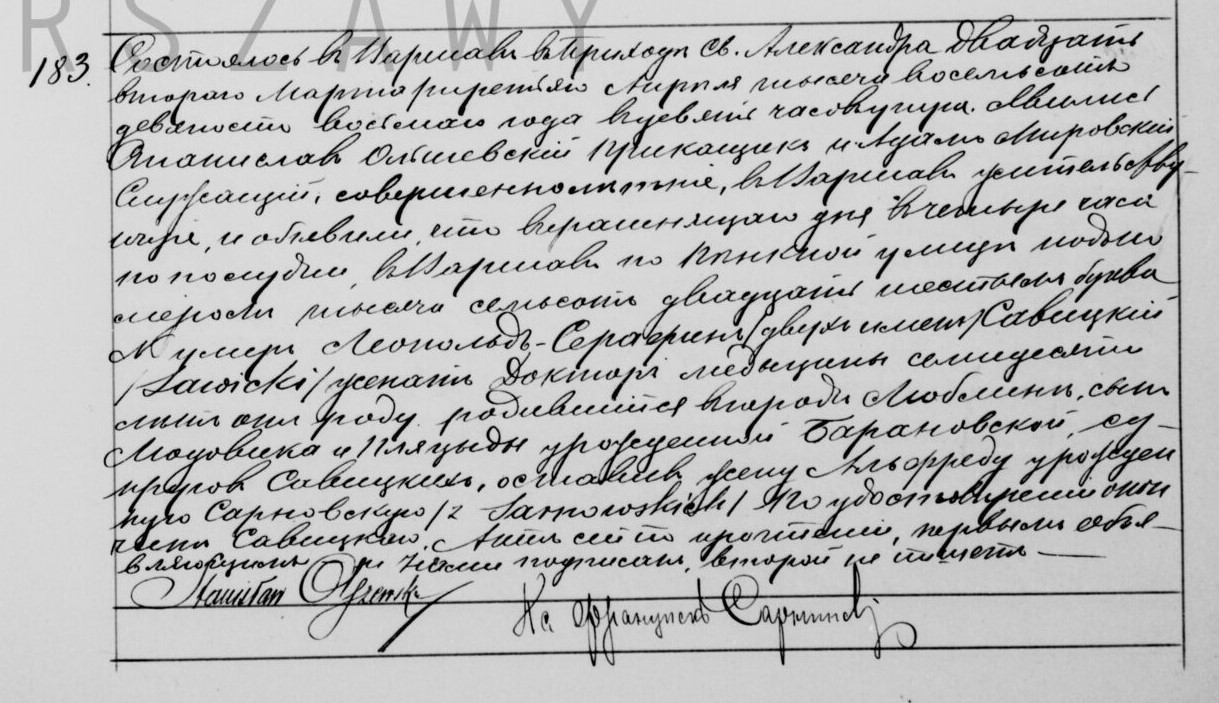 RSZAWY
183. Состоялось въ Варшавѣ въ Приходѣ Св. Александра двадцать
второго Марта /третьяго Апрѣля тысяча восемьсотъ
девяносто восьмаго года въ девять часовъ утра. Явились
Станиславъ Ольшевскій прикащикъ и Адамъ Мировскій
совершеннолѣтніе, въ Варшавѣ жительству-
ющіе, и объявили, что вчерашняго дня въ четыре часа
по полудни, въ Варшавѣ по улицѣ подъ но
меромъ тысяча семьсотъ двадцать шестымъ буква
N умеръ Леопольдъ-Серафинъ /двухъ именъ/ Савицкій
/Sawicki/ женатъ Докторъ медыцины семидесяти
лѣтъ отъ роду родившійся въ городѣ Люблинѣ, сынъ
Людовика и Пляцыды урожденной Барановской, су-
пруговъ Савицкихъ, оставивъ жену Альфреду урожден
ную Сарновскую /z Sarnowskich/ По удостовѣреніи о кон
чинѣ Савицкаго. Актъ сей по прочтеніи, первымъ объя-
вляющимъ и Нами подписанъ, второй не пишетъ
Stanisław Olszewski
Кс Францискъ